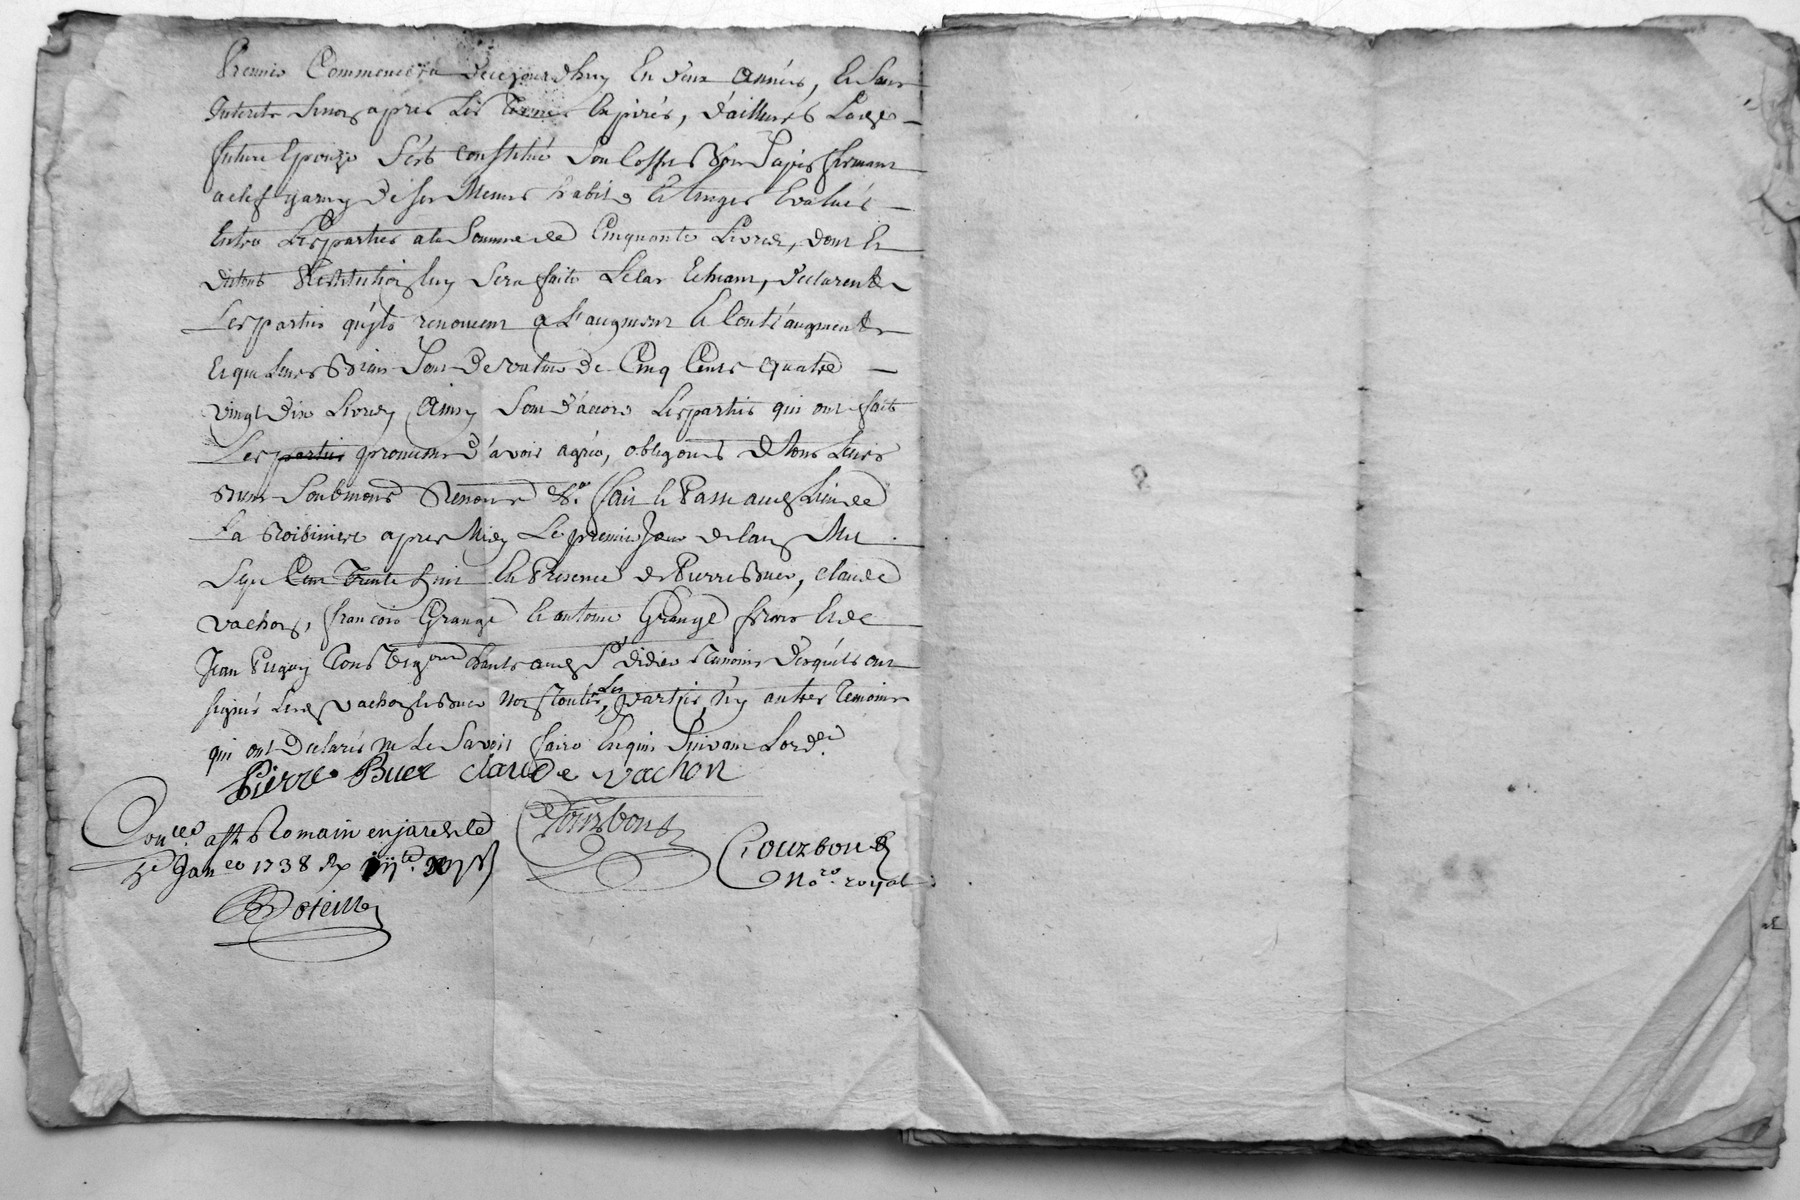 Premier Commencera de ce jourdhuy En deux années, Et sans
Interets sinon apres Les Termes Expirés, d'ailleurs Lade
future Epouze s'est constitué son Coffre bois Sapin fermant
a clef garny de ses Menus habits Et linges Evalués
Entre Les parties ala Somme de Cinquante Livres, dont Et
du tout Restitution luy sera faite Le Cas Echeant, declarent
Les parties qu'ils renoncent a L'augment Et Contr'augment
Et que leurs Biens Sont de valeur de Cinq Cents quatre
vingt dix Livres, Ainsy Sont d'accord Les parties qui ont fait
Les parties promesse d'avoir agréé, obligeants de tous leurs
Biens Soubmons Renons &a fait et Passé aud Lieu de
La après Midy Le premier Jour de lan Mil
Sept Cent Trente huit En Presence de Pierre Buer, Claude
vachon, françois Grange Et antoine Grange freres Et de
Jean tous aud St didier temoins desquels ont
signés Lesd vachon Et Buer non toutes Les parties, ny autres temoins
qui ont declarés ne Le Savoir faire Enquis Suivant Lord.e
Pierre Buer claude vachon
Con.lle a St Romain en jarest le
Jan.er 1738
Courbon
Courbon
No.re royal